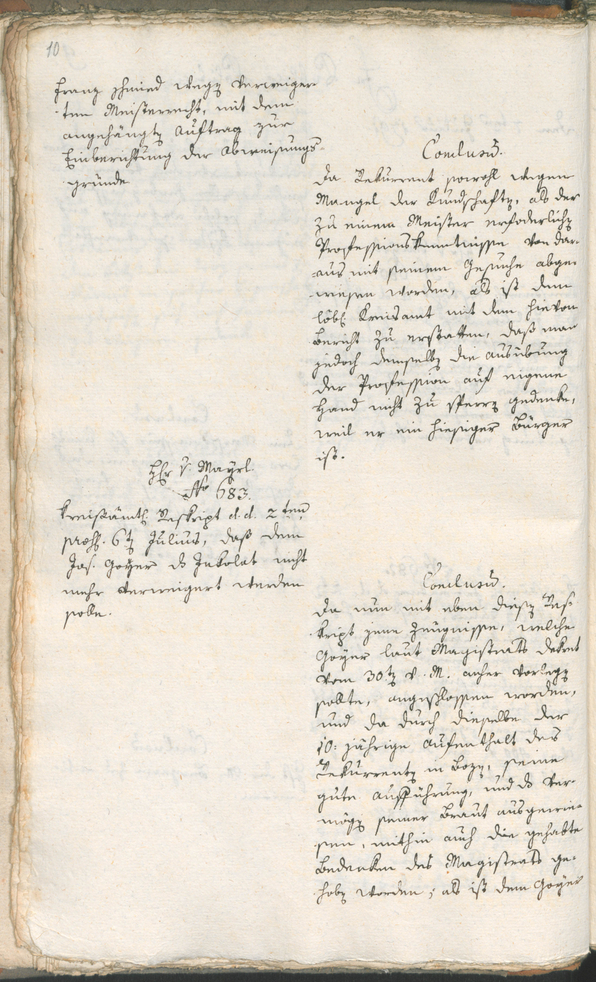 10
Franz Schmied wegen verweiger-
-ten Meisterrecht, mit dem
angehängten Auftrag zur
Einberichtung der Abweisungs-
gründe
Conclusum.
Da Rekurrent sowohl wegen
Mangel der Kundschaften, als der
zu einem Meister erforderlichen
Professionskenntnisse von dar-
aus mit seinem Gesuche abge-
wiesen worden, als ist dem
löbl. Kreisamt mit dem hievon
Bericht zu erstatten, daß man
jedoch demselben die Ausübung
der Profession auf eigene
Hand nicht zu sperren gedenke,
weil er ein hiesiger Bürger
ist.
Hr. v. Mayrl.
No 683.
Kreisämtl. Reskript d. d. 2ten,
præs. 6ten Julius, daß dem
Jos. Goÿer das Inkolat nicht
mehr verweigert werden
solle.
Conclusum.
Da nun mit eben diesen Res-
kript jene Zeugnisse, welche
Goÿer laut Magistrats Dekret
vom 30ten v. M. anher vorlegen
sollte, angeschlossen worden,
und da durch dieselbe der
10. jährige Aufenthalt des
Rekurrenten in Bozen, seine
gute Aufführung, und das Ver-
mögen seiner Braut ausgewie-
sen, mithin auch die gehabte
Bedenken des Magistrats ge-
hoben worden; als ist dem Goÿer